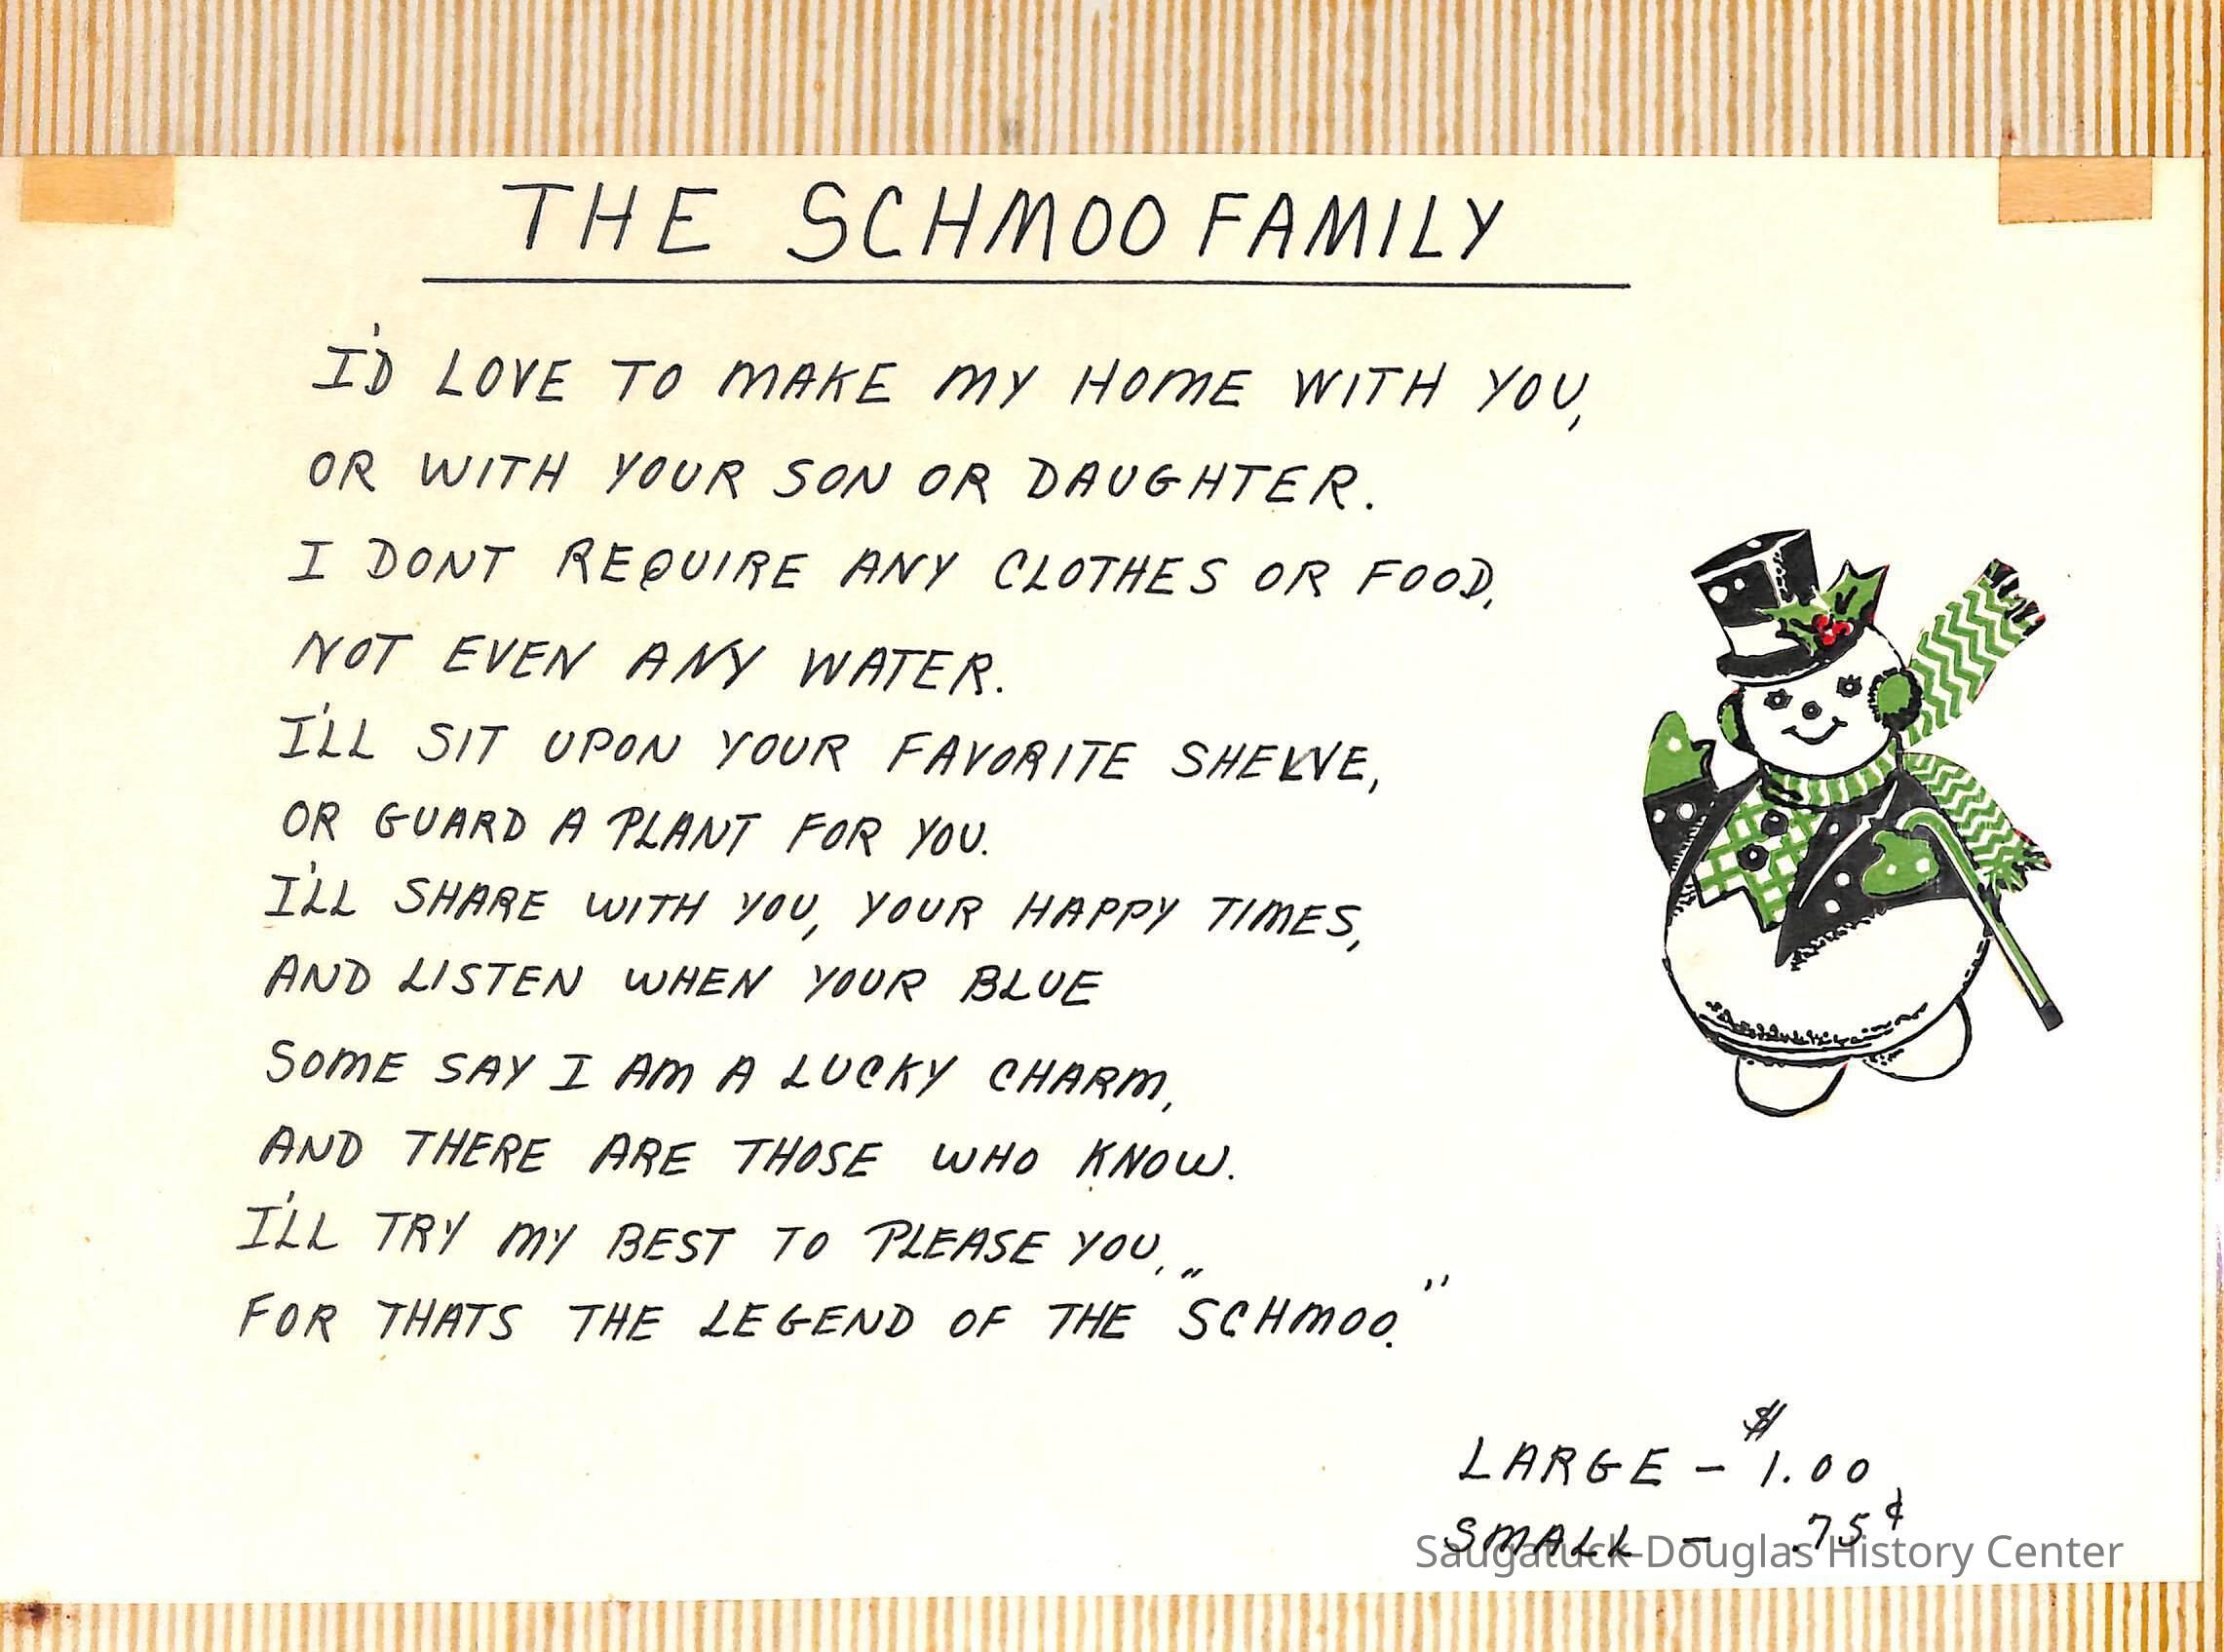 THE SCHMOO FAMILY
I'D LOVE TO MAKE MY HOME WITH YOU,
OR WITH YOUR SON OR DAUGHTER.
I DONT REQUIRE ANY CLOTHES OR FOOD,
NOT EVEN ANY WATER.
I'LL SIT UPON YOUR FAVORITE SHELVE,
OR GUARD A PLANT FOR YOU.
I'LL SHARE WITH YOU, YOUR HAPPY TIMES,
AND LISTEN WHEN YOUR BLUE
SOME SAY I AM A LUCKY CHARM,
AND THERE ARE THOSE WHO KNOW.
I'LL TRY MY BEST TO PLEASE YOU,
FOR THATS THE LEGEND OF THE "SCHMOO."
LARGE - $1.00
SMALL - .75¢
Saugatuck-Douglas History Center